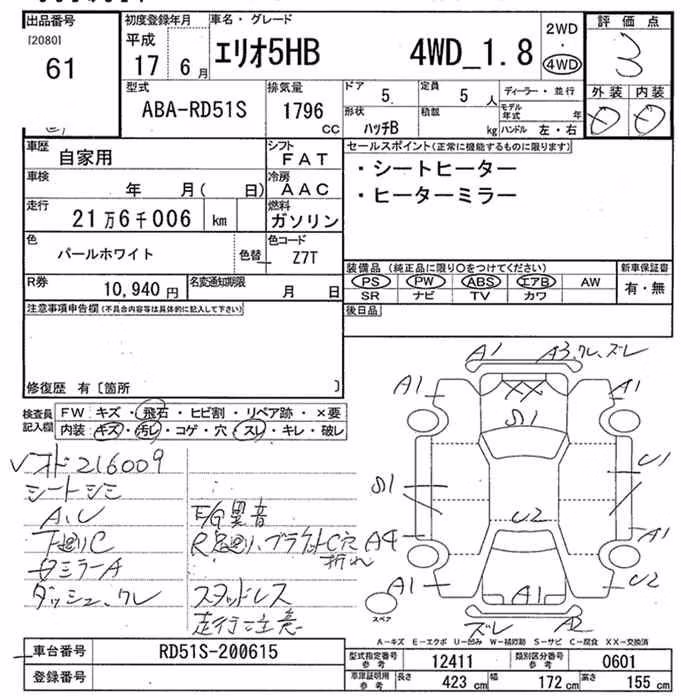 出品番号 初度登録年月 車名・グレード 2WD 評価点
[2080] 平成 エリオ5HB 4WD_1.8 ・ 3
61 17年 6月 4WD 外装 内装
型式 排気量 ドア 定員 ディーラー・並行
ABA-RD51S 1796 CC 5 5人 モデル年式 年
形状 積載 kg ハンドル 左・右
ハッチB
車歴 自家用 シフト FAT セールスポイント(正常に機能するものに限ります)
車検 年 月( 日) 冷房 AAC ・シートヒーター
走行 21万6千006 km 燃料 ガソリン ・ヒーターミラー
色 パールホワイト 色替 色コード Z7T
装備品 (純正品に限り○をつけてください) 新車保証書
R券 10,940円 名変通知期限 月 日 PS PW ABS エアB AW 有・無
SR ナビ TV カワ
注意事項申告欄(不具合内容等は具体的に記入して下さい) 後日品
修復歴 有〔箇所 〕
検査員記入欄 FW キズ・飛石・ヒビ割・リペア跡・×要
内装・キズ・汚レ・コゲ・穴・スレ・キレ・破レ
A1 A3、ワレ、ズレ
A1 XX A1
S1
S1 U1
U2
A4 A1
A1 A1 U2
ズレ A2
スペア
オド216009
シートシミ
A、U E/G異音
下廻りC R足廻り、ブラケットC穴
折れ
ダッシュ、ワレ スタッドレス
走行注意
A－キズ E－エクボ U－凹み W－補修跡 S－サビ C－腐食 XX－交換済
車台番号 RD51S-200615 型式指定番号 参考 12411 類別区分番号 参考 0601
登録番号 車庫証明用 参考 長さ 423 cm 幅 172 cm 高さ 155 cm